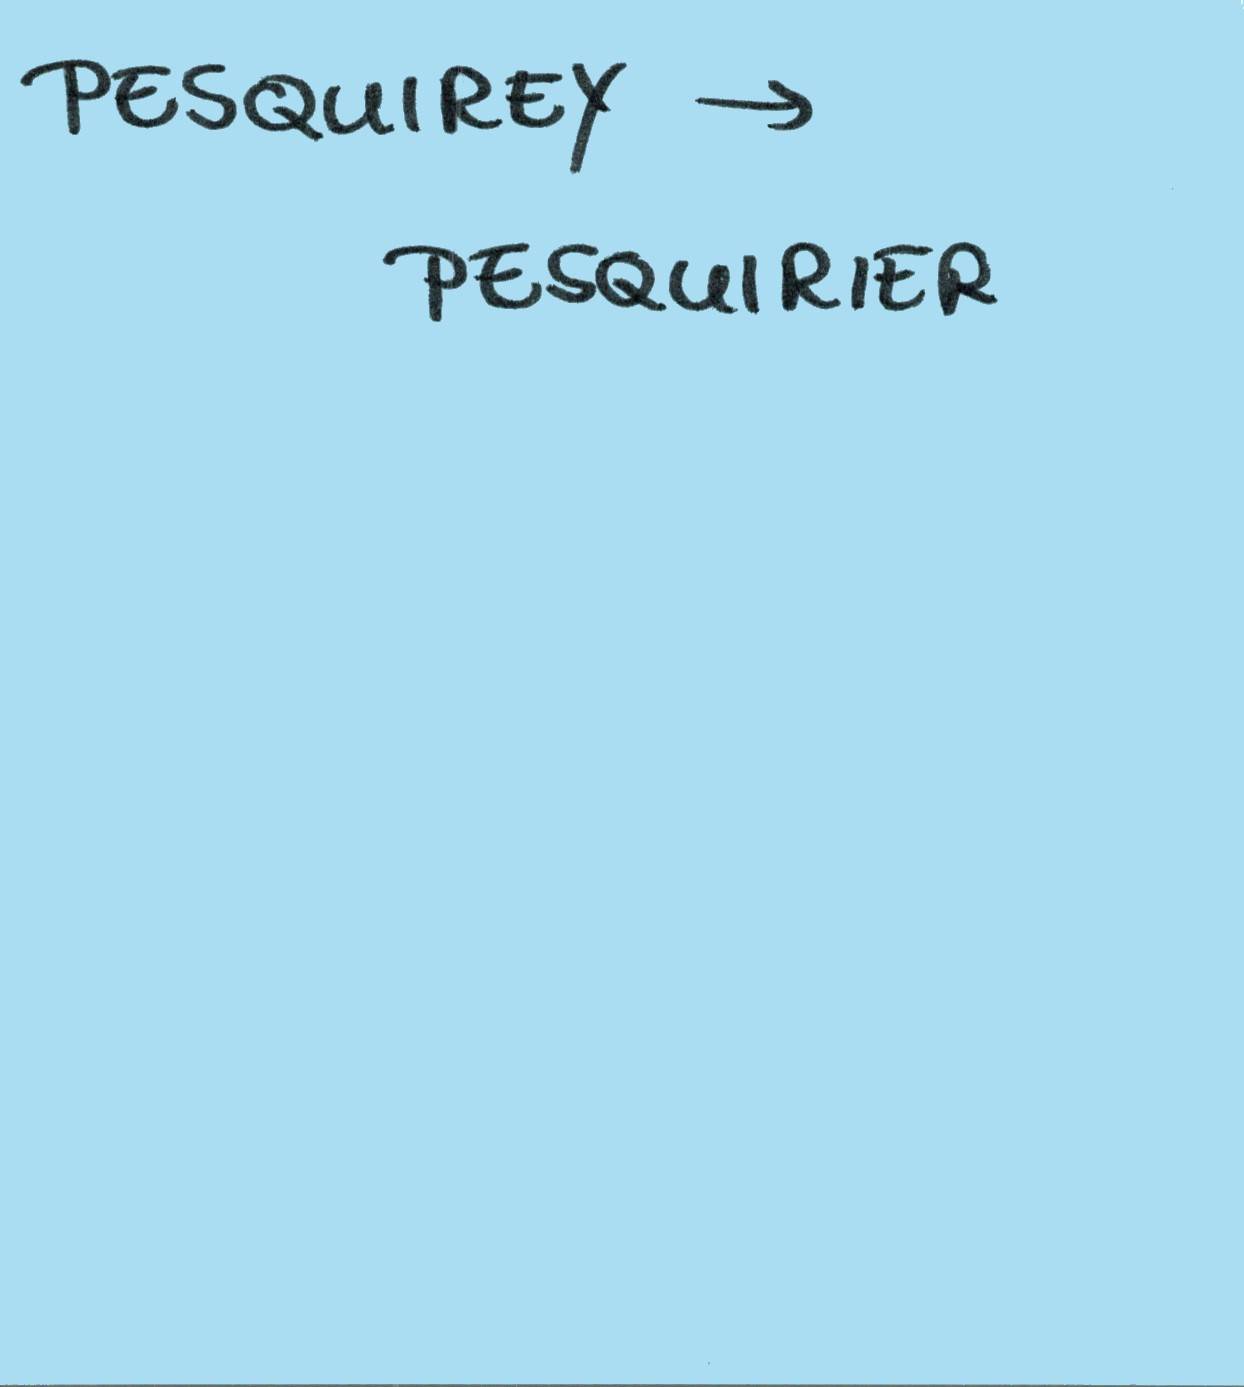 PESQUIREY →
PESQUIRIER